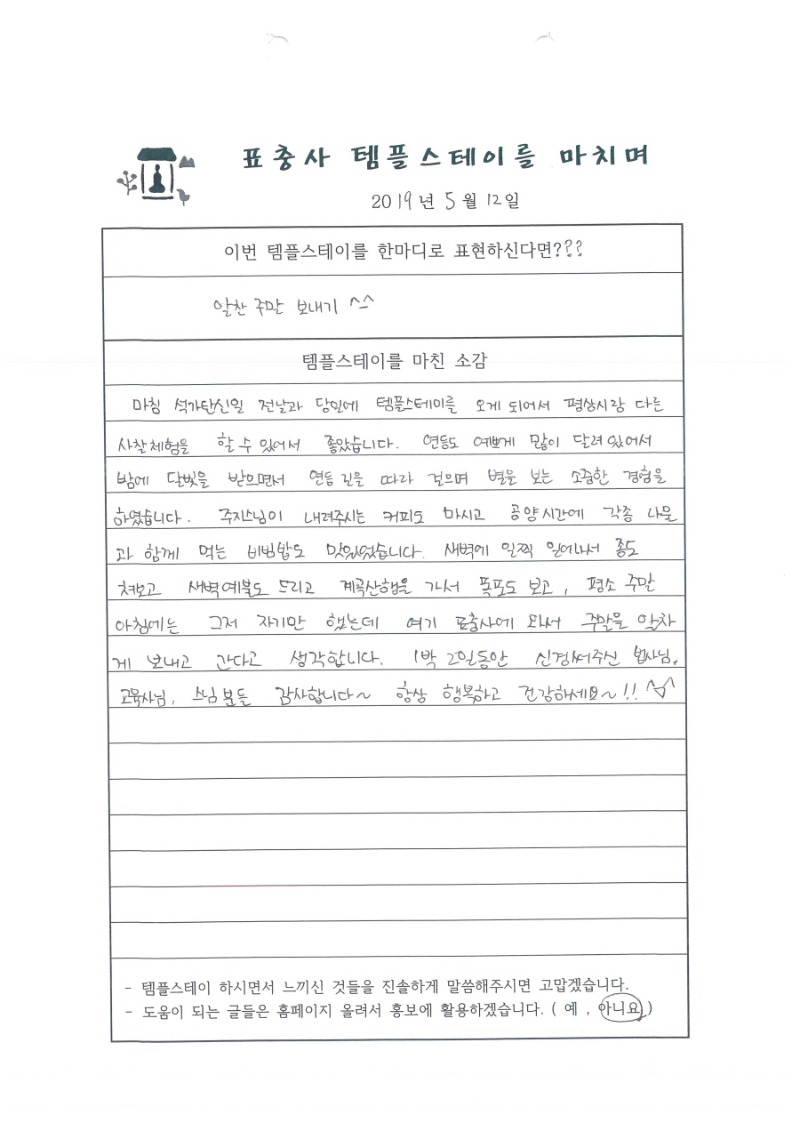 표충사 템플스테이를 마치며
2019년 5월 12일
이번 템플스테이를 한마디로 표현하신다면???
알찬 주말 보내기 ^^
템플스테이를 마친 소감
마침 석가탄신일 전날과 당일에 템플스테이를 오게 되어서 평상시랑 다른
사찰체험을 할 수 있어서 좋았습니다. 연등도 예쁘게 많이 달려있어서
밤에 달빛을 받으면서 연등 길을 따라 걸으며 별을 보는 소중한 경험을
하였습니다. 주지스님이 내려주시는 커피도 마시고 공양시간에 각종 나물
과 함께 먹는 비빔밥도 맛있었습니다. 새벽에 일찍 일어나서 종도
쳐보고 새벽예불도 드리고 계곡산행을 가서 폭포도 보고, 평소 주말
아침에는 그저 자기만 했는데 여기 표충사에 와서 주말을 알차
게 보내고 간다고 생각합니다. 1박 2일동안 신경써주신 법사님,
교육사님, 스님분들 감사합니다~ 항상 행복하고 건강하세요~!! ^^
- 템플스테이 하시면서 느끼신 것들을 진솔하게 말씀해주시면 고맙겠습니다.
- 도움이 되는 글들은 홈페이지 올려서 홍보에 활용하겠습니다. ( 예 , 아니요 )